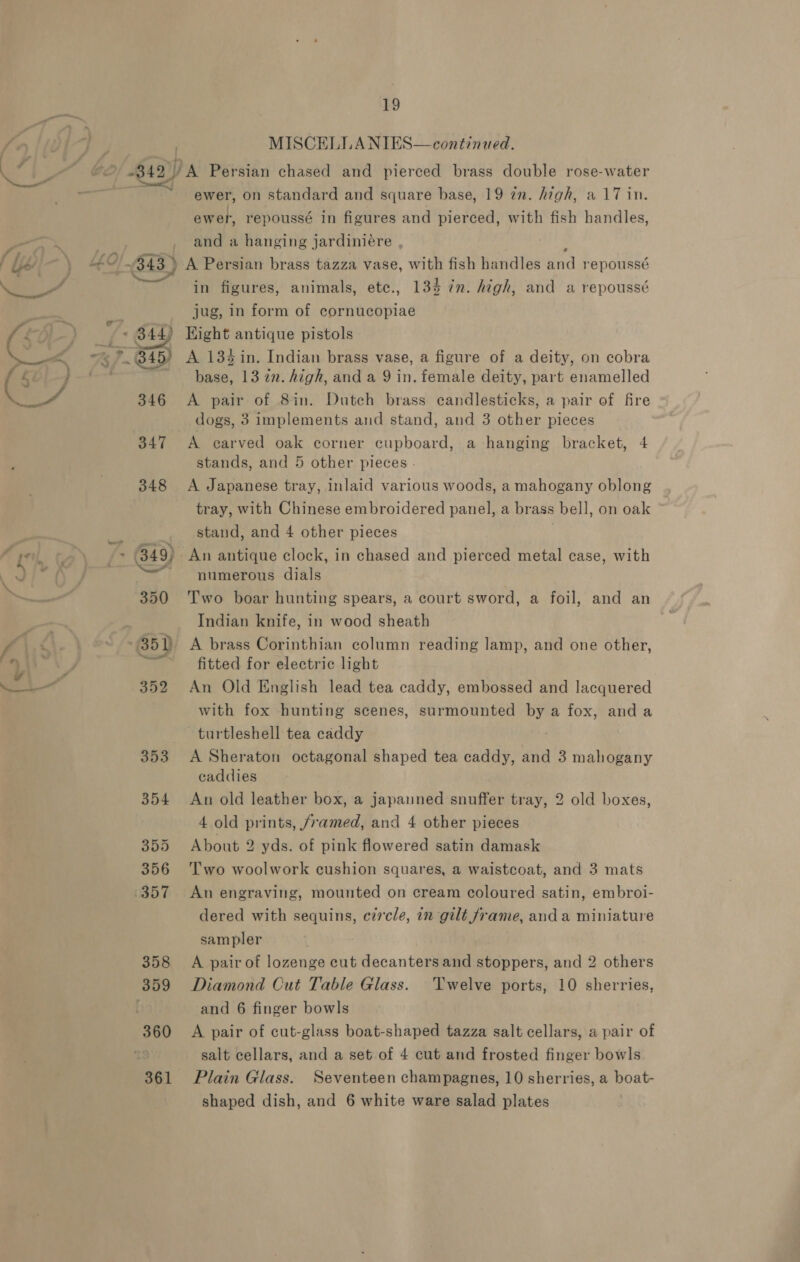 19
MISCELLANIES—continued.
342 A Persian chased and pierced brass double rose-water
ewer, on standard and square base, 19 in. high, a 17 in.
ewer, repoussé in figures and pierced, with fish handles,
and a hanging jardinière
343 A Persian brass tazza vase, with fish handles and repoussé
in figures, animals, etc., 13½ in. high, and a repoussé
jug, in form of cornucopiae
344 Eight antique pistols
345 A 13½ in. Indian brass vase, a figure of a deity, on cobra
base, 13 in. high, and a 9 in. female deity, part enamelled
346 A pair of 8in. Dutch brass candlesticks, a pair of fire
dogs, 3 implements and stand, and 3 other pieces
347 A carved oak corner cupboard, a hanging bracket, 4
stands, and 5 other pieces
348 A Japanese tray, inlaid various woods, a mahogany oblong
tray, with Chinese embroidered panel, a brass bell, on oak
stand, and 4 other pieces
349 An antique clock, in chased and pierced metal case, with
numerous dials
350 Two boar hunting spears, a court sword, a foil, and an
Indian knife, in wood sheath
351 A brass Corinthian column reading lamp, and one other,
fitted for electric light
352 An Old English lead tea caddy, embossed and lacquered
with fox hunting scenes, surmounted by a fox, and a
turtleshell tea caddy
353 A Sheraton octagonal shaped tea caddy, and 3 mahogany
caddies
354 An old leather box, a japanned snuffer tray, 2 old boxes,
4 old prints, framed, and 4 other pieces
355 About 2 yds. of pink flowered satin damask
356 Two woolwork cushion squares, a waistcoat, and 3 mats
357 An engraving, mounted on cream coloured satin, embroi-
dered with sequins, circle, in gilt frame, and a miniature
sampler
358 A pair of lozenge cut decanters and stoppers, and 2 others
359 Diamond Cut Table Glass. Twelve ports, 10 sherries,
and 6 finger bowls
360 A pair of cut-glass boat-shaped tazza salt cellars, a pair of
salt cellars, and a set of 4 cut and frosted finger bowls
361 Plain Glass. Seventeen champagnes, 10 sherries, a boat-
shaped dish, and 6 white ware salad plates